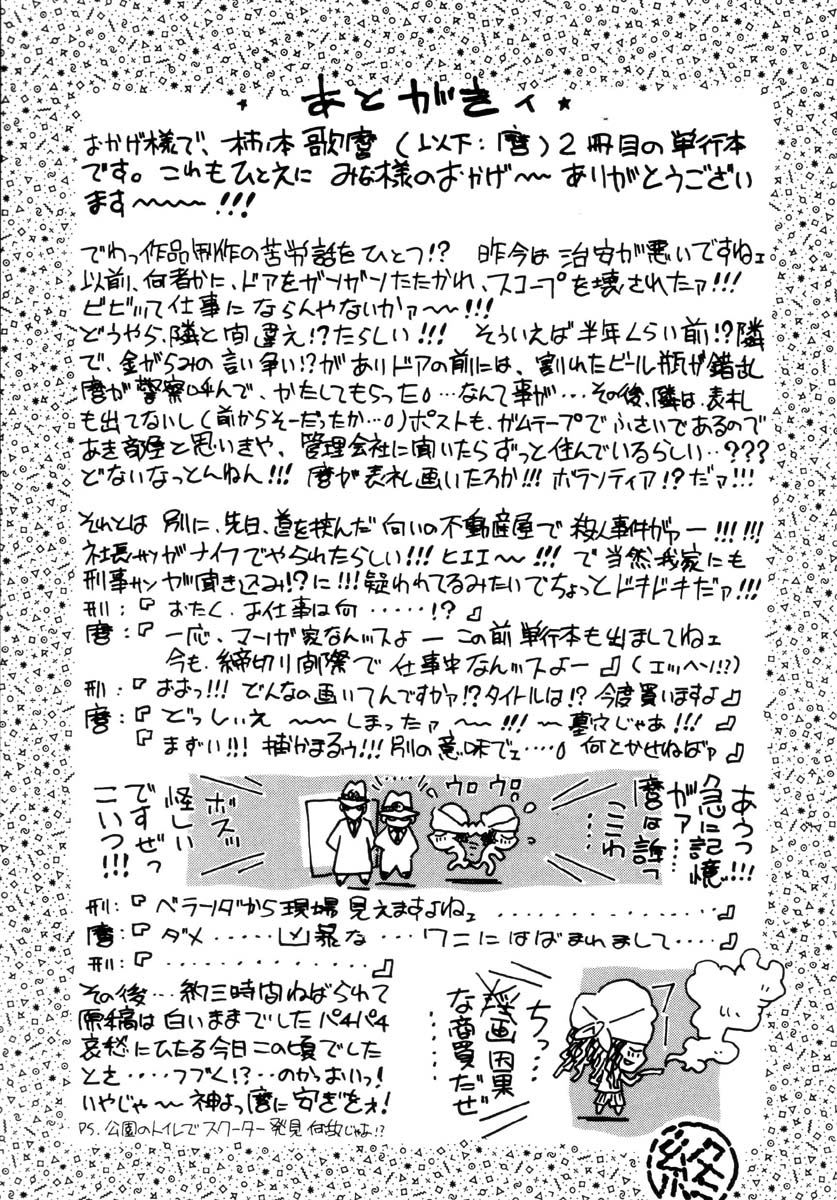 あとがきィ
おかげ様で、柿ノ本歌麿（以下：麿）2冊目の単行本
です。これもひとえに みな様のおかげ〜〜 ありがとうござい
ます〜〜〜!!!
でわっ作品制作の苦労話をひとつ!? 昨今は 治安が悪いですねェ
以前、何者かに、ドアをガンガンたたかれ、スコープを壊されたァ!!!
ビビッて仕事に ならんやないかァ〜〜!!!
どうやら、隣と間違え!?たらしい!!! そういえば半年くらい前!?隣
で、金がらみの言い争い!?がありドアの前には、割れたビール瓶が錯乱
麿が警察呼んで、かたしてもらった。…なんて事が…その後、隣は、表札
も出てないし（前からそーだったか…。）ポストも、ガムテープでふさいであるので
あき部屋と思いきや、管理会社に聞いたらずっと住んでいるらしい‥???
どないなっとんねん!!! 麿が表札画いたろか!!! ボランティア!?だァ!!!
それとは 別に、先日、道を挟んだ 向いの不動産屋で 殺人事件がァー!!!!!!
社長サンがナイフでやられたらしい!!! ヒエエ〜〜!!! で当然我家にも
刑事サンが聞き込み!?に!!!疑われてるみたいでちょっとドキドキだァ!!!
刑：『 おたく、お仕事は何……!? 』
麿：『 一応、マンガ家なんスよー この前 単行本も出ましてねェ
今も、締切り間際で 仕事中なんッスよー 』（エッヘン!?）
刑：『 おおっ!!! どんなの画いてんですかァ!?タイトルは!? 今度買いますよ 』
麿：『 どっしぃえ 〜〜〜 しまったァ 〜〜!!! 〜 墓穴じゃあ!!! 』
『 まずい!!! 捕かまるゥ!!! 別の意味でェ‥‥。 何とかせねばァ 』
あうっ!!!
急に記憶
がァ……
麿は誰っ
ここわ
ウロ ウロ
ボスッ
怪しい
ですぜっ
こいつ!!!
刑：『 ベランダから 現場 見えますよねェ ………… 』
麿：『 ダメ……凶暴な… ワニにはばまれまして…. 』
刑：『 ………… 』
その後…約三時間ねばられて
原稿は 白いままでした パチパチ
哀愁にひたる今日この頃でした
とさ‥‥つづく!?‥のかっおいっ!
いやじゃ〜〜 神よっ麿に安ぎをェ!
P.S. 公園のトイレで スクーター 発見 何故じゃ!?
ちっ……
画因果
な商買だぜ
……
フー